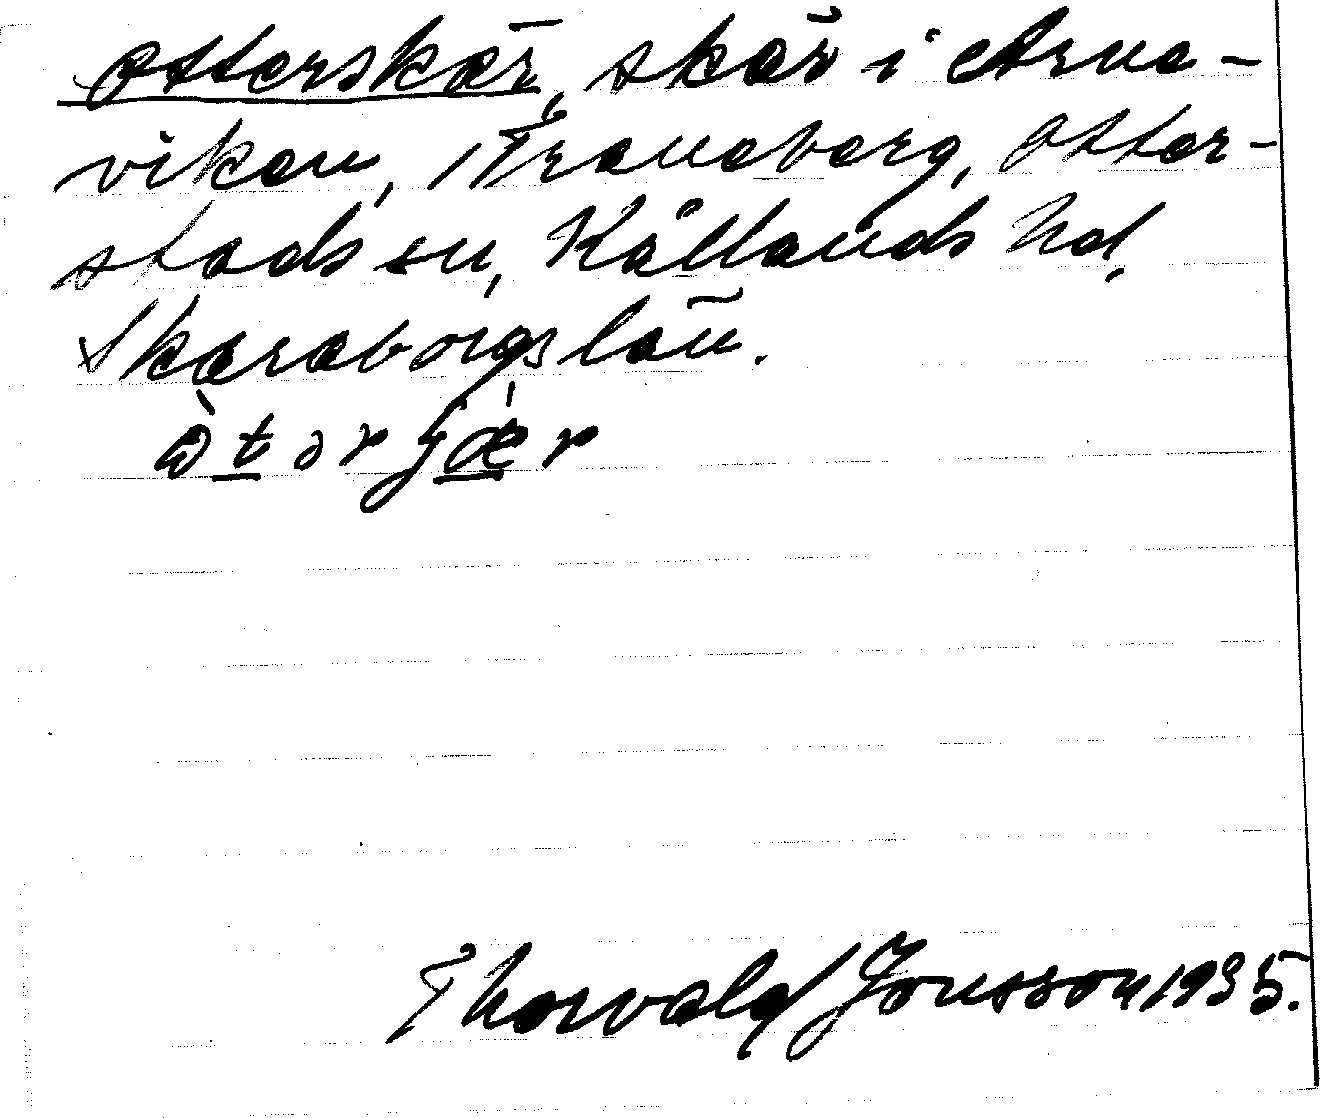 Otterskär, skär i Arna-
viken, i Traneberg, Otter-
stads sn, Kållands hd,
Skaraborgs län.
Thorvald Jonsson, 1935.